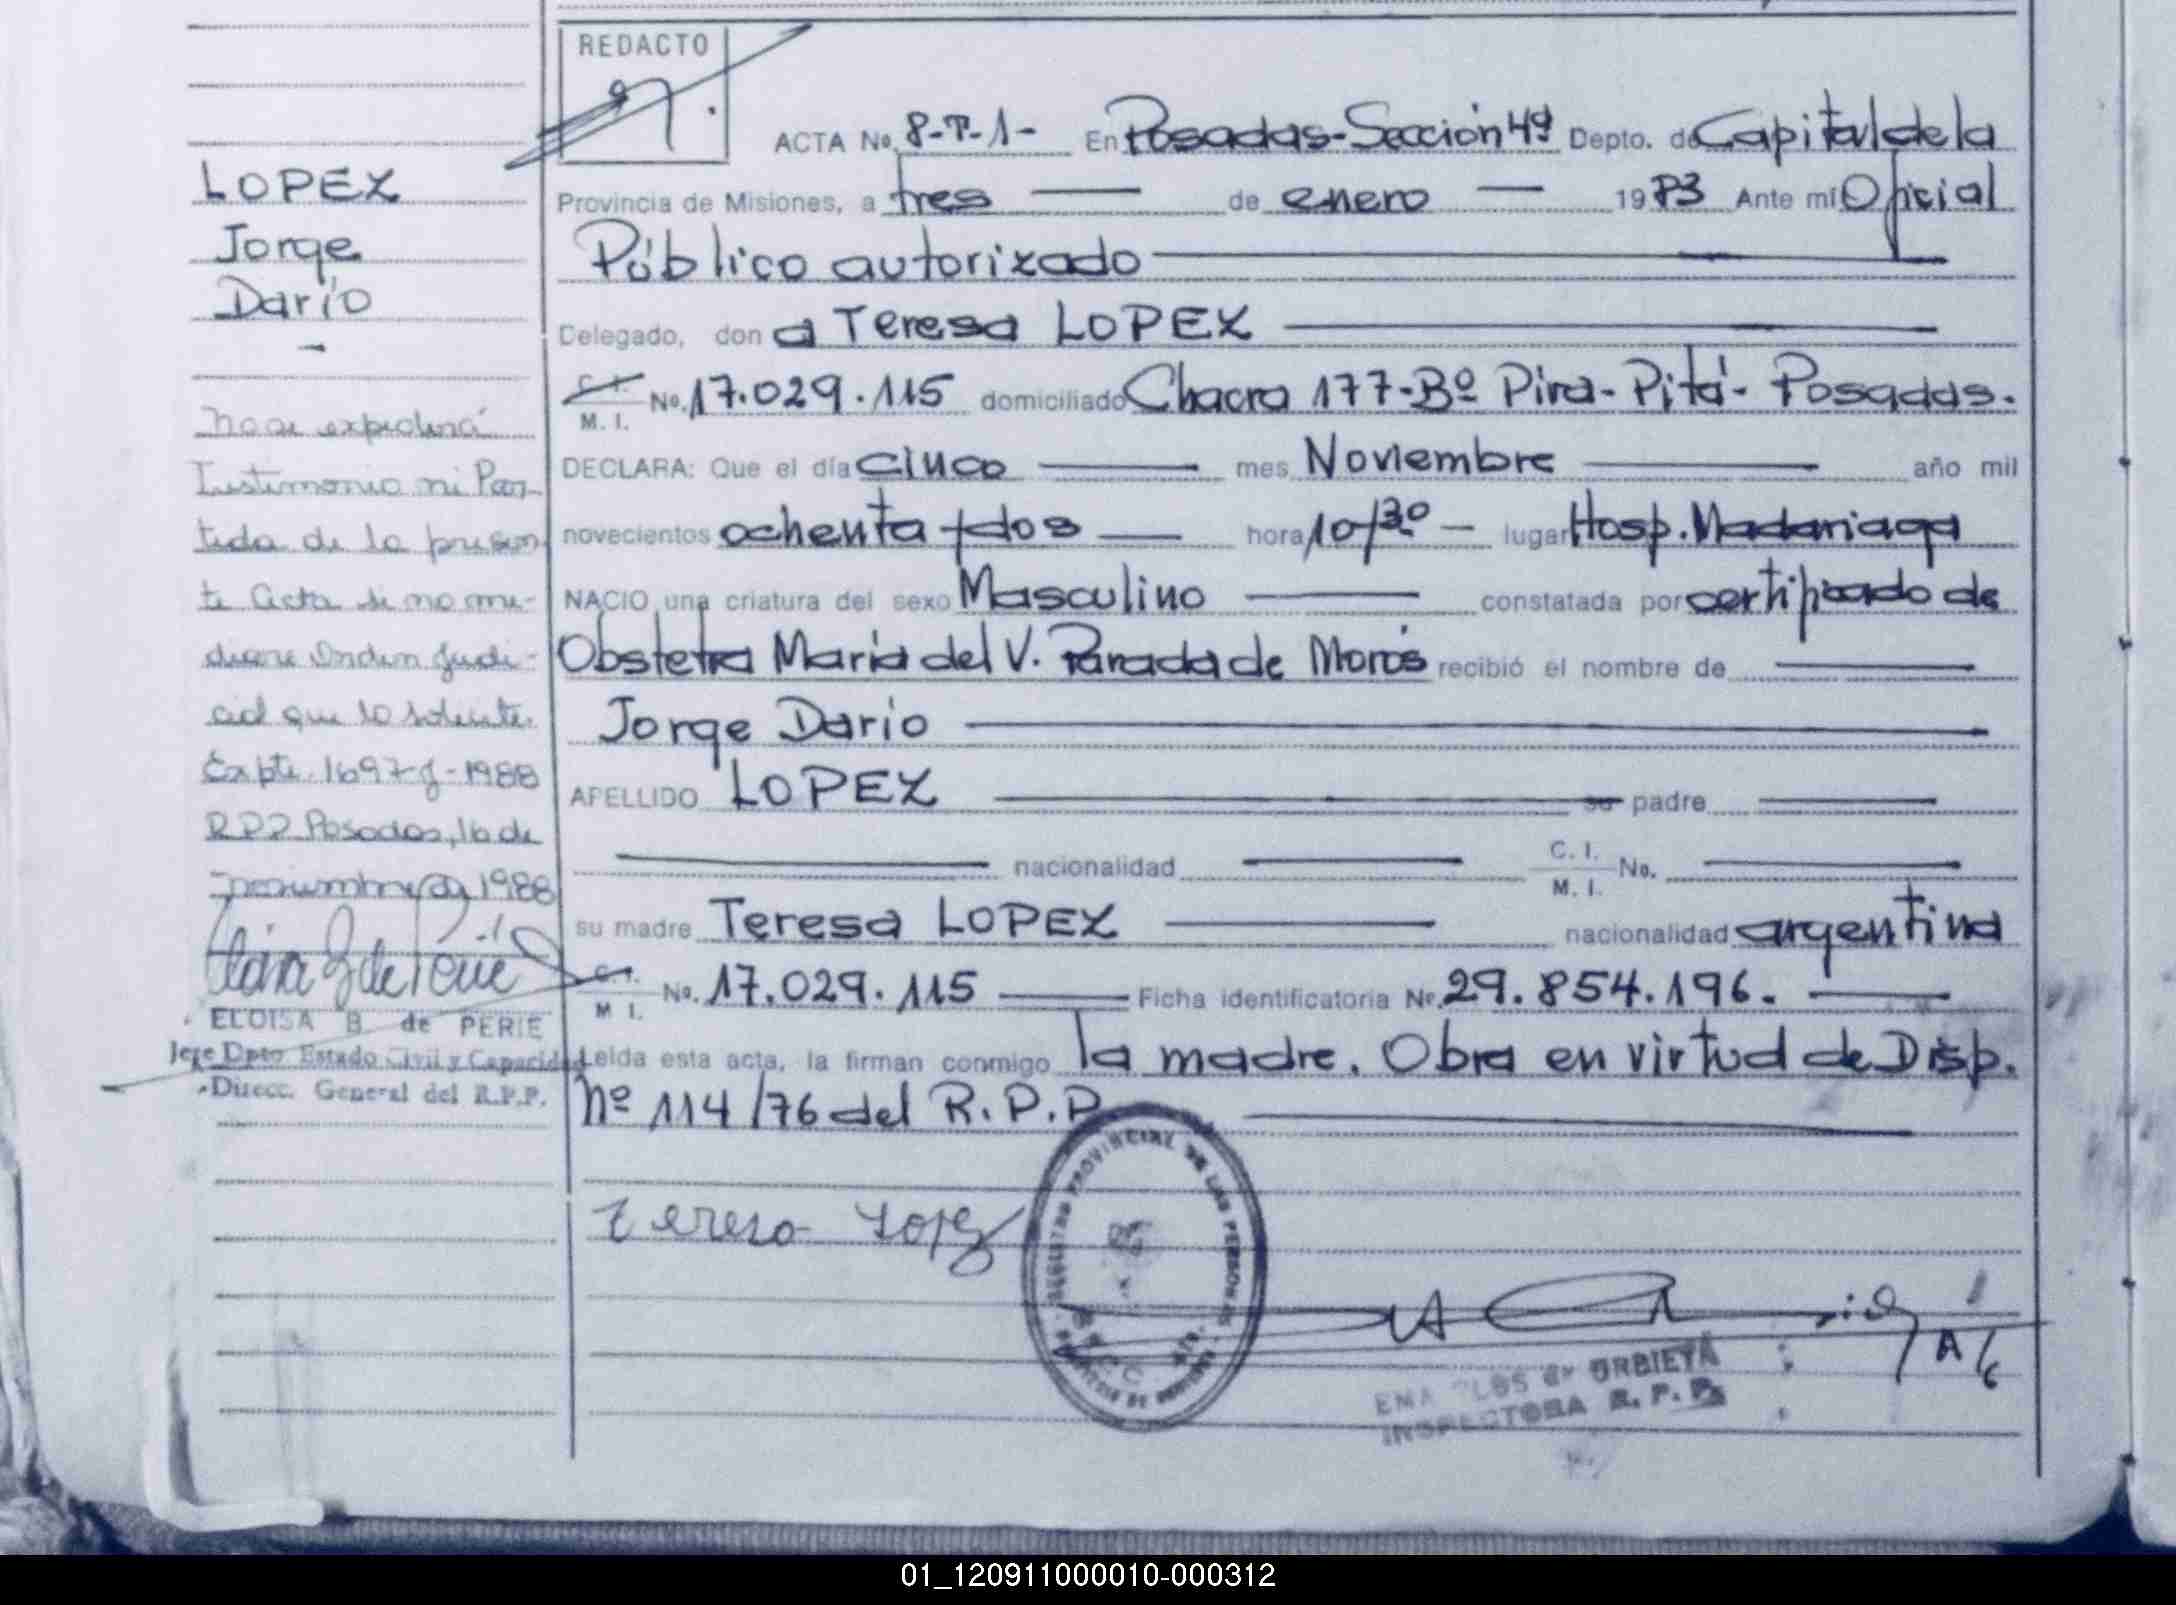 REDACTO
ACTA No. 8-T-1- En Posadas-Sección 4ª Depto. de Capital de la
Provincia de Misiones, a tres de enero 1983 Ante mí Oficial
Público autorizado
Delegado, don a Teresa LOPEZ
C. I.
M. I. No. 17.029.115 domiciliado Chacra 177-Bº Pira-Pitá- Posadas.
DECLARA: Que el día cinco mes Noviembre año mil
novecientos ochenta y dos hora 10/30 - lugar Hosp. Madariaga
NACIO una criatura del sexo Masculino constatada por certificado de
Obstetra María del V. Parada de Morós recibió el nombre de
Jorge Darío
APELLIDO LOPEZ su padre
nacionalidad C. I. M. I. No.
su madre Teresa LOPEZ nacionalidad argentina
C. I.
M. I. No. 17.029.115 Ficha identificatoria Nº 29.854.196.
Leída esta acta, la firman conmigo la madre. Obra en virtud de Disp.
Nº 114/76 del R.P.P.
Teresa Lopez
REGISTRO PROVINCIAL DE LAS PERSONAS
ORBIETA
INSPECTORA R. P. P.
LOPEZ
Jorge
Darío
-
No se expedirá
Testimonio ni Par-
tida de la presen
te Acta si no me-
diare Orden Judi-
cial que lo solicite.
Expte. 1697-J-1988
RPP Posadas, 16 de
de 1988
ELOISA B de PERIE
Jefe Dpto Estado Civil y Capacidad
Direcc. General del R.P.P.
01_120911000010-000312